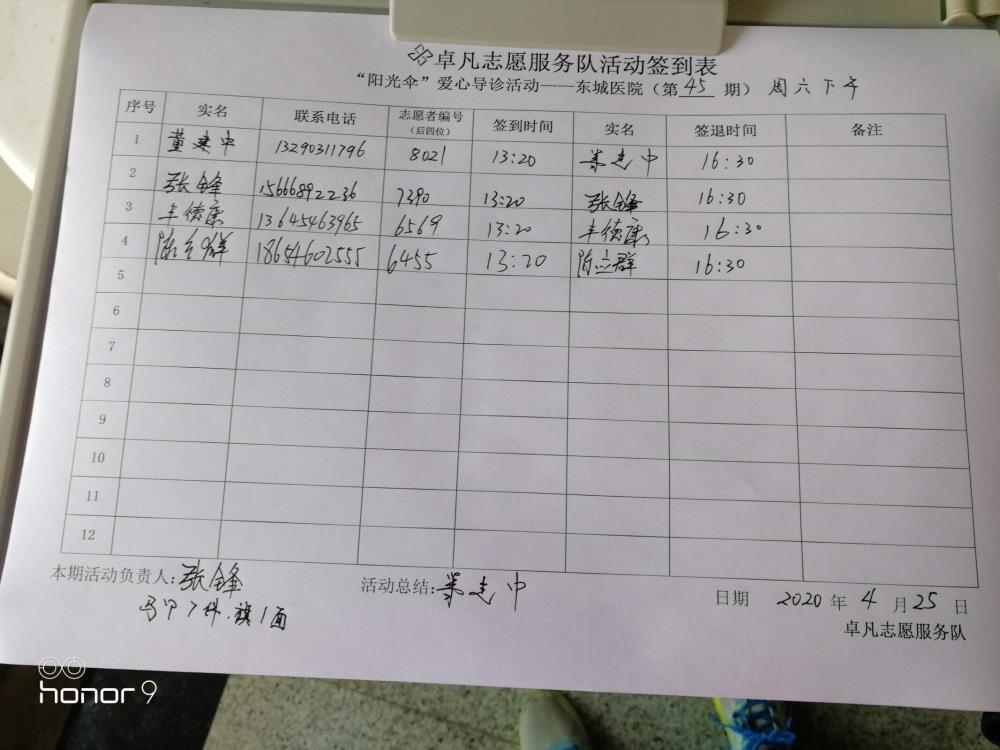 卓凡志愿服务队活动签到表
“阳光伞”爱心导诊活动——东城医院（第45期） 周六下午
序号 实名 联系电话 志愿者编号（后四位） 签到时间 实名 签退时间 备注
1 董建中 13290311796 8021 13:20 董建中 16:30
2 张锋 15666892236 7390 13:20 张锋 16:30
3 丰德康 13645463965 6569 13:20 丰德康 16:30
4 陈立群 18654602555 6455 13:20 陈立群 16:30
5
6
7
8
9
10
11
12
本期活动负责人:张锋 活动总结:董建中 日期 2020年4月25日
马甲7件.旗1面 卓凡志愿服务队
honor 9